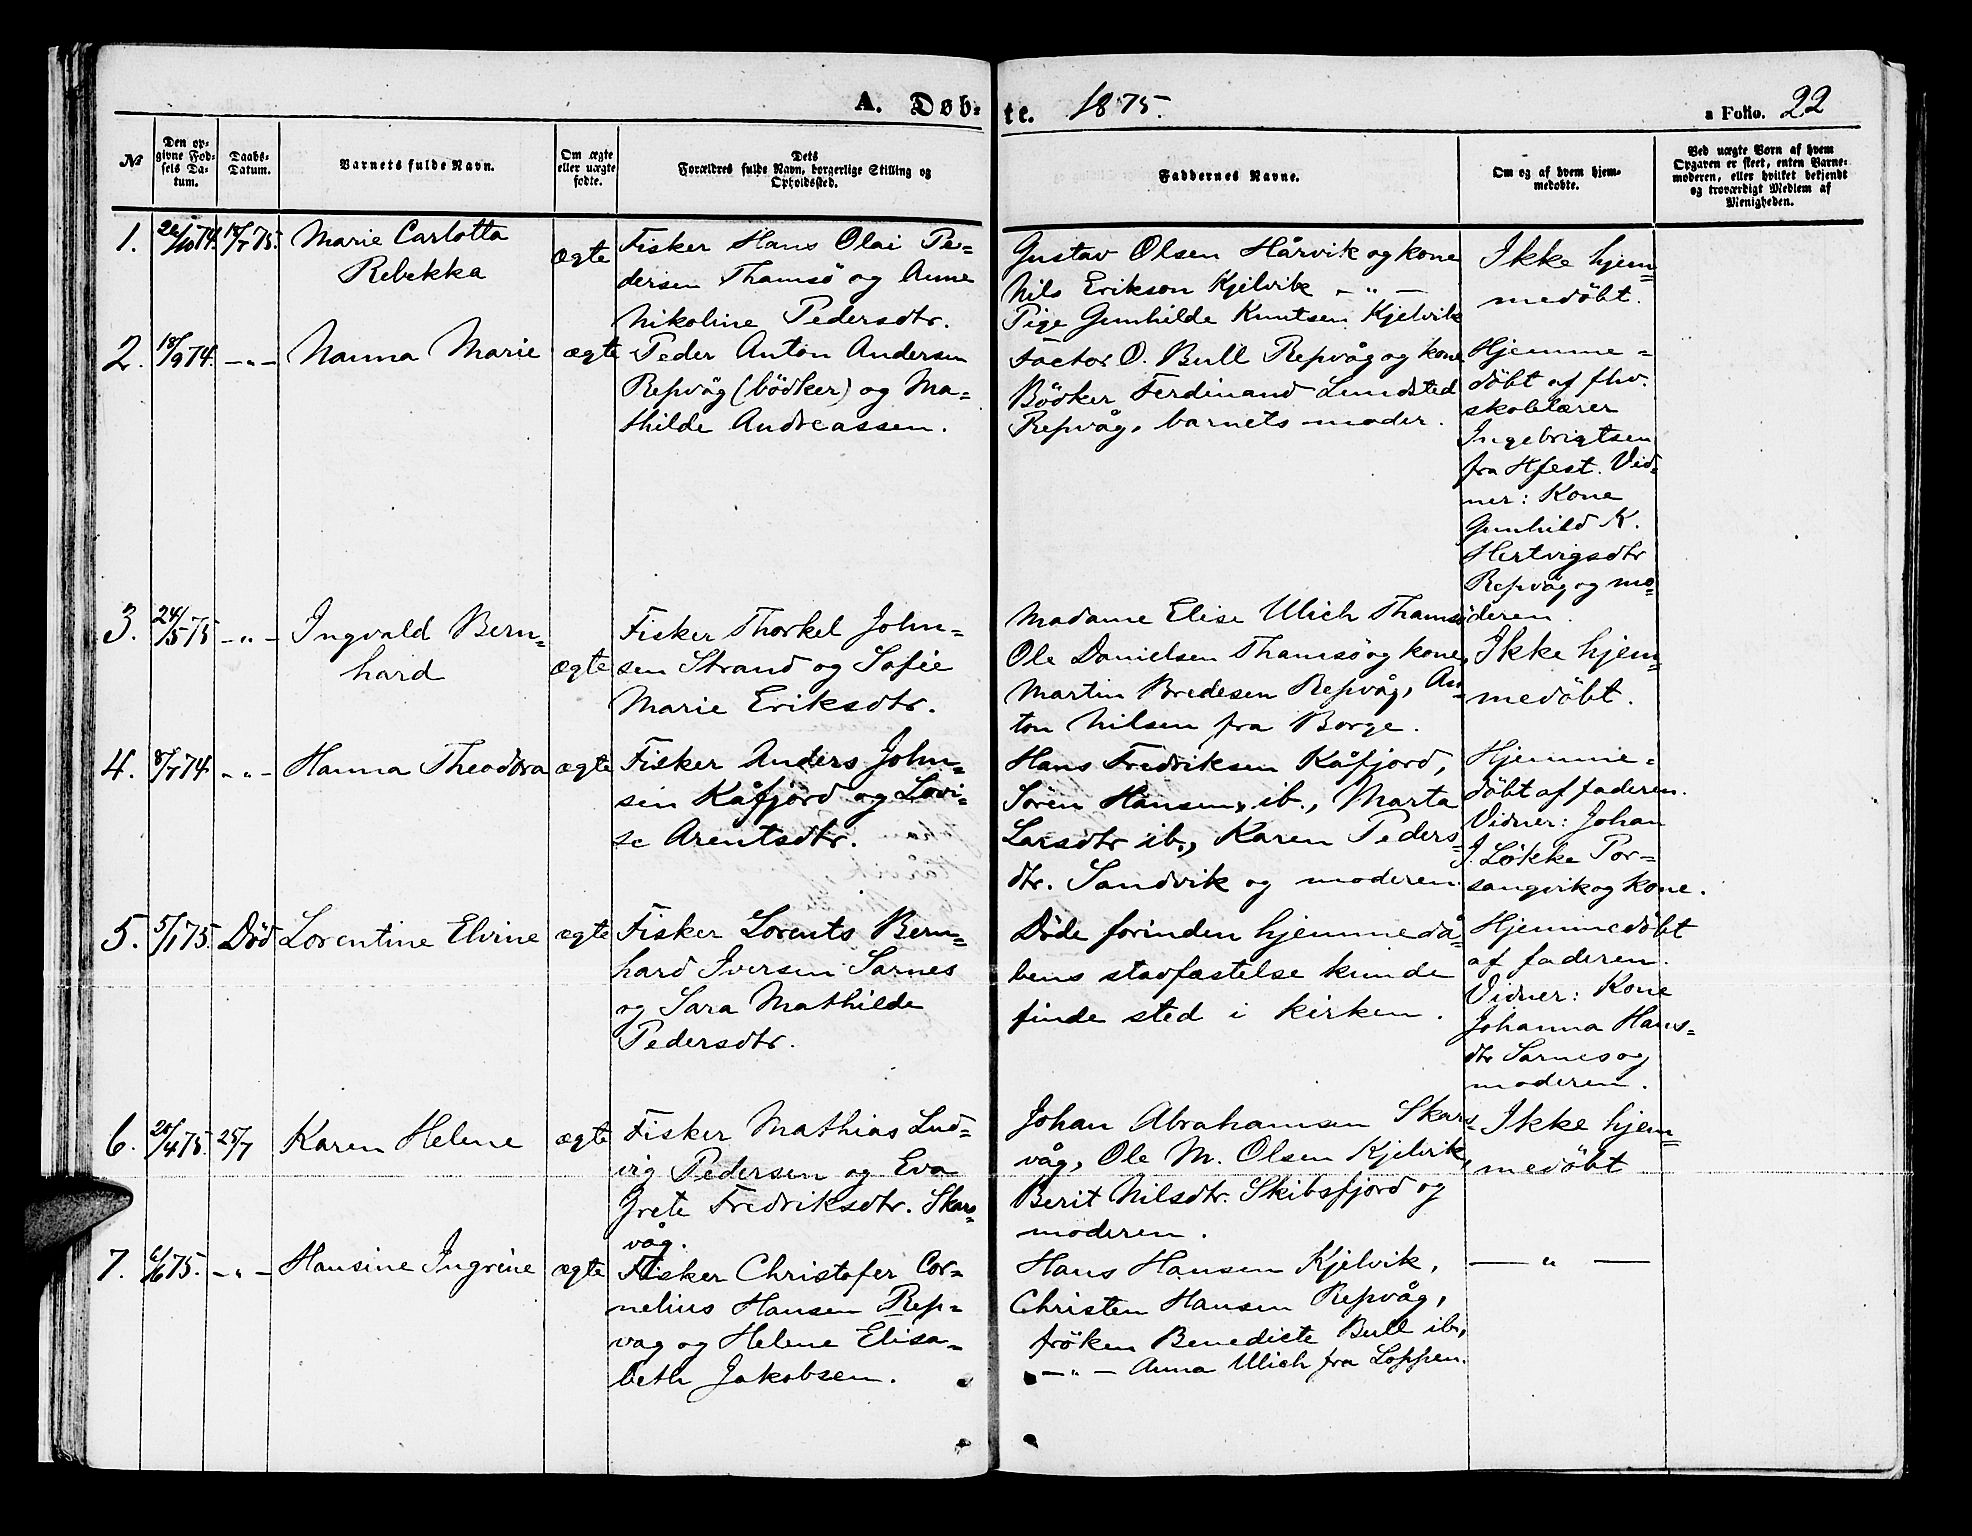 A. Døb- te. 1875. a Folio. 22
№
Den op-
givne Fød-
sels Da-
tum.
Daabs-
Datum.
Varnets fulde Navn.
Om ægte
eller uægte
fødte.
Dets
Forældres fulde Navn, borgerlige Stilling og
Opholdssted.
Faddernes Navne.
Om og af hvem hjem-
medøbte.
Ved uægte Born af hvem
Opgaven er skeet, enten Barne-
moderen, eller hvilket bekjendt
og troværdigt Medlem af
Menigheden.
1.
26/10 74.
18/7 75.
Marie Carlotta
Rebekka
ægte
Fisker Hans Olai Pe-
dersen Thamsö og Anne
Nikoline Pedersdtr.
Gustav Olsen Hårvik og kone
Nils Erikson Kjelvik - " -
Pige Gunhilde Knutsen Kjelvik
Ikke hjem-
medöbt.
2.
18/9 74.
- " -
Nanna Marie
ægte
Peder Anton Andersen
Repvåg (bödker) og Ma-
thilde Andreassen.
Factor O. Bull Repvåg og kone
Bödker Ferdinand Lundsted
Repvåg, barnets moder.
Hjemme-
döbt af fhv.
skolelærer
Ingebrigtsen
fra Hfest. Vid-
ner: Kone
Gunhild K.
Hertvigsdtr
Repvåg og mo-
deren.
3.
24/5 75
- " -
Ingvald Bern-
hard
ægte
Fisker Thorkel John-
sen Strand og Sofie
Marie Eriksdtr.
Madame Elise Ulich Thamsö
Ole Danielsen Thamsö og kone,
Martin Bredesen Repvåg, An-
ton Nilsen fra Borge.
Ikke hjem-
medöbt.
4.
8/7 74
- " -
Hanna Theodora
ægte
Fisker Anders John-
sen Kåfjord og Lovi-
se Arentsdtr.
Hans Fredriksen Kåfjord,
Sören Hansen, ib., Marta
Larsdtr ib., Karen Peders-
dtr. Sandvik og moderen.
Hjemme-
döbt af faderen.
Vidner: Johan
J. Lökke Por-
sangvik og kone.
5.
5/1 75.
Död
Lorentine Elvine
ægte
Fisker Lorents Bern-
hard Iversen Sarnes
og Sara Mathilde
Pedersdtr.
Döde forinden hjemmedå-
bens stadfæstelse kunde
finde sted i kirken.
Hjemmedöbt
af faderen.
Vidner: Kone
Johanna Hans-
dtr Sarnes og
moderen.
6.
20/4 75.
25/7
Karen Helene
ægte
Fisker Mathias Lud-
vig Pedersen og Eva
Grete Fredriksdtr. Skars-
våg.
Johan Abrahamsen Skars-
våg, Ole M. Olsen Kjelvik,
Berit Nilsdtr. Skibsfjord og
moderen.
Ikke hjem-
medöbt
7.
6/6 75.
- " -
Hansine Ingrine
ægte
Fisker Christofer Cor-
nelius Hansen Rep-
vag og Helene Elisa-
beth Jakobsen.
Hans Hansen Kjelvik,
Christen Hansen Repvåg,
fröken Benedicte Bull ib,
- " - Anna Ulich fra Loppen.
- " -